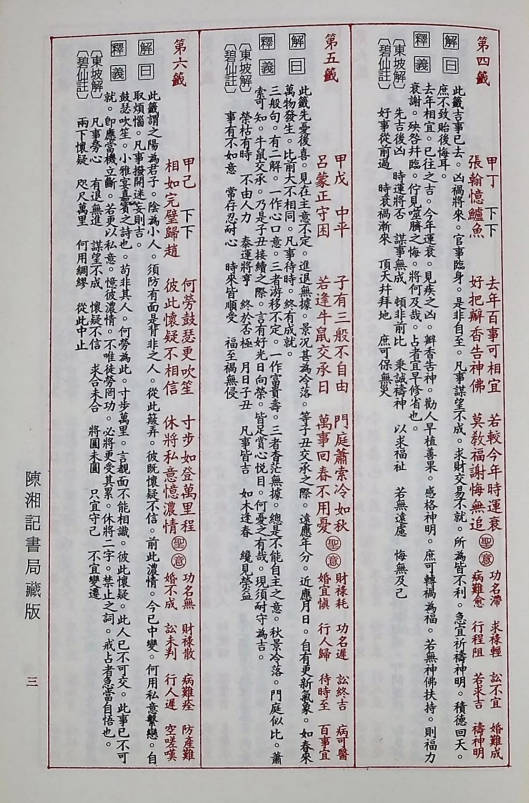 第四籤
甲丁 下下
張翰憶鱸魚
去年百事可相宜
若較今年時運衰
好把瓣香告神佛
莫教福謝悔無追
聖意
功名滯 求祿輕 訟不宜 婚難成
病難愈 行程阻 若求吉 禱神明
解曰
此籤吉事已去。凶禍將來。官事臨身。是非自至。凡事謀望不成。求財交易不就。所為皆不利。急宜祈禱神明。積德回天。
庶不致貽後悔耳。
釋義
去年相宜。已往之吉。今年運衰。見疾之凶。瓣香告神。勸人早植善果。感格神明。庶可轉禍為福。若無神佛扶持。則福力
衰謝。殃咎幷臨。佇見噬臍之悔。將何及哉。占者宜早修省也。
東坡解
先吉後凶 時運將否 謀事無成 頓非前比 秉誠禱神 以求福祉 若無遠慮 悔無及己
碧仙註
好事從前過 時衰禍漸來 頂天幷拜地 庶可保無災
第五籤
甲戊 中平
呂蒙正守困
子有三般不自由
門庭蕭索冷如秋
若逢牛鼠交承日
萬事回春不用憂
聖意
財祿耗 功名遲 訟終吉 病可醫
婚宜慎 行人歸 待時至 百事宜
解曰
此籤先憂後喜。見在主意不定。進退無據。景況甚為冷落。等子丑交承之際。遠應年分。近應月日。自有更新氣象。如春來
萬物發生。比前大不相同。凡事待時。終有成就。
釋義
三般句。有二解。一作心口意。三者游移不定。一作富貴壽。三者杳茫無據。總是不能自主之意。秋景冷落。門庭似比。蕭
索可知。牛鼠交承。乃是子丑接續之際。言有好光日向榮。皆足賞心悦目。何憂之有哉。現須耐守為吉。
東坡解
榮枯有時 不由人力 泰運將亨 終於否極 月日子丑 凡事皆吉 如木逢春 纔見榮益
碧仙註
事有不如意 當存忍耐心 時來皆順受 福至禍無侵
第六籤
甲己 下下
相如完璧歸趙
何勞鼓瑟更吹笙
寸步如登萬里程
彼此懷疑不相信
休將私意憶濃情
聖意
功名無 財祿散 病難痊 防產難
婚不成 訟未判 行人遲 空嗟嘆
解曰
此籤謂之陽為君子。陰為小人。須防有面是背非之人。從此蘇弄。彼既懷疑不信。前此濃情。今已中變。何用私意繫戀。自
取煩惱。凡事撥開迷妄則吉
釋義
鼓瑟吹笙。小雅宴嘉賓之詩也。苟非其人。何勞為此。寸步萬里。言覿面不能相識。彼此懷疑。此人已不可交。此事已不可
就。即應當機立斷。若更以私意。憶彼濃情。不唯徒勞罔功。必將更受其累。休將二字。禁止之詞。戒占者急當自悟也。
東坡解
凡事勞心 有退無進 謀望不成 懷疑不信 求合未合 將圓未圓 只宜守己 不宜變遷
碧仙註
兩下懷疑 咫尺萬里 何用綢繆 從此中止
陳湘記書局藏版
三